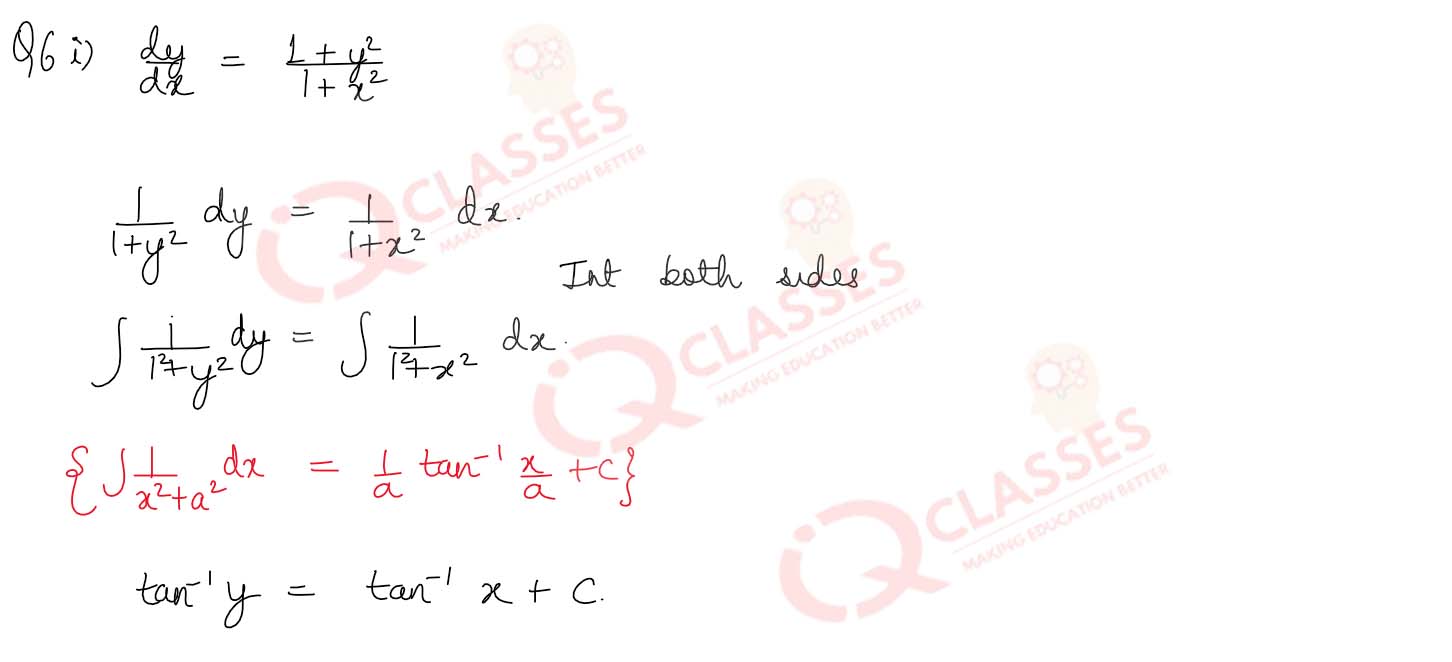 Q6 i) dy/dx = 1 + y²/1 + x²
1/1+y² dy = 1/1+x² dx.
Int both sides
∫ 1/1²+y² dy = ∫ 1/1²+x² dx.
{∫ 1/x²+a² dx = 1/a tan⁻¹ x/a + c}
tan⁻¹ y = tan⁻¹ x + c.
iQ CLASSES
MAKING EDUCATION BETTER
iQ CLASSES
MAKING EDUCATION BETTER
iQ CLASSES
MAKING EDUCATION BETTER